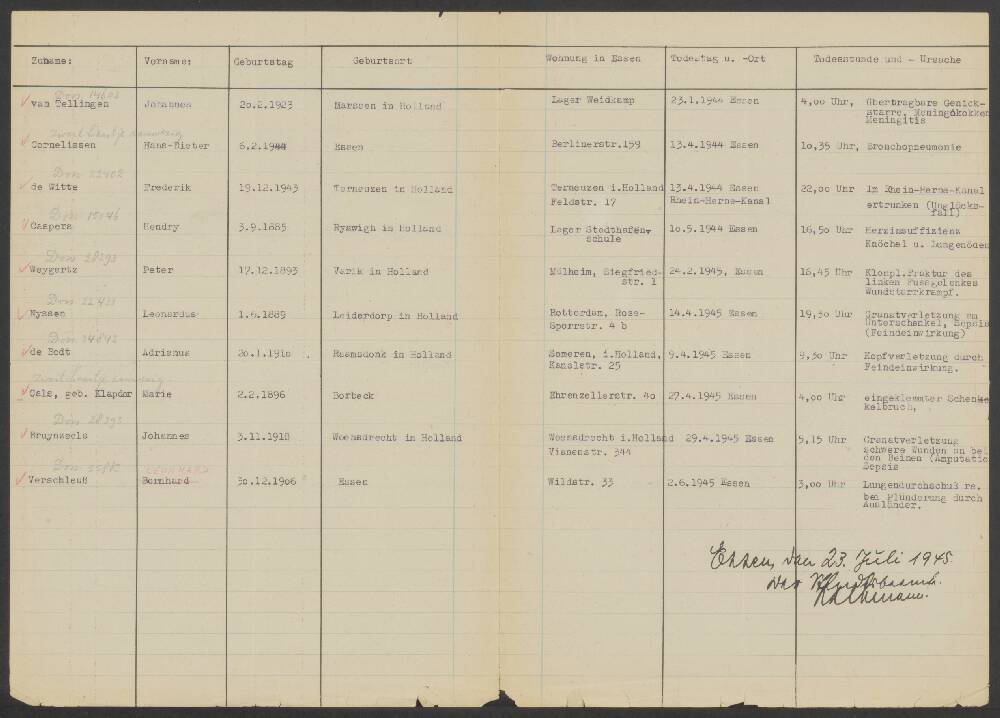 Zuname: Vorname: Geburtstag Geburtsort Wohnung in Essen Todestag u. -Ort Todesstunde und - Ursache
Dos. 14603
van Tellingen Johannes 20.2.1923 Marssen in Holland Lager Weidkamp 23.1.1944 Essen 4,oo Uhr, Übertragbare Genick-
starre, Meningokokken
Meningitis
Cornelissen Hans-Dieter 6.2.1944 Essen Berlinerstr.159 13.4.1944 Essen 1o,35 Uhr, Bronchopneumonie
Dos. 22402
de Witte Frederik 19.12.1943 Terneuzen in Holland Terneuzen i.Holland 13.4.1944 Essen 22,oo Uhr Im Rhein-Herne-Kanal
Feldstr. 17 Rhein-Herne-Kanal ertrunken (Unglücks-
fall)
Dos. 15046
Caspers Hendry 3.9.1885 Ryswigh in Holland Lager Stadthafen- 1o.5.1944 Essen 16,5o Uhr Herzinsuffizienz
schule Knöchel u. Lungenödem
Dos. 28293
Weygertz Peter 17.12.1893 Varik in Holland Mülheim, Siegfried- 24.2.1945, Essen 16,45 Uhr Klompl.Fraktur des
str. 1 linken Fussgelenkes
Wundstarrkrampf.
Nyssen Leonardus 1.6.1889 Leiderdorp in Holland Rotterdam, Rose- 14.4.1945 Essen 19,3o Uhr Granatverletzung am
Sporrstr. 4 b Unterschenkel, Sepsis
(Feindeinwirkung)
Dos. 24842
de Bodt Adrianus 2o.1.191o Raamsdonk in Holland Someren, i.Holland, 9.4.1945 Essen 9,5o Uhr Kopfverletzung durch
Kanalstr. 25 Feindeinwirkung.
Cals, geb. Klapdor Marie 2.2.1896 Borbeck Ehrenzellerstr. 4o 27.4.1945 Essen 4,oo Uhr eingeklemmter Schenke
kelbruch,
Dos. 28395
Bruynzeels Johannes 3.11.1918 Woensdrecht in Holland Woensdrecht i.Holland 29.4.1945 Essen 5,15 Uhr Granatverletzung
Visnenstr. 344 schwere Wunden an bei
den Beinen (Amputatio
Sepsis
Dos. LEONHARD
Verschleuß Bernhard 3o.12.19o6 Essen Wildstr. 33 2.6.1945 Essen 3,oo Uhr Lungendurchschuß re.
bei Plünderung durch
Ausländer.
Essen, den 23. Juli 1945.
Der